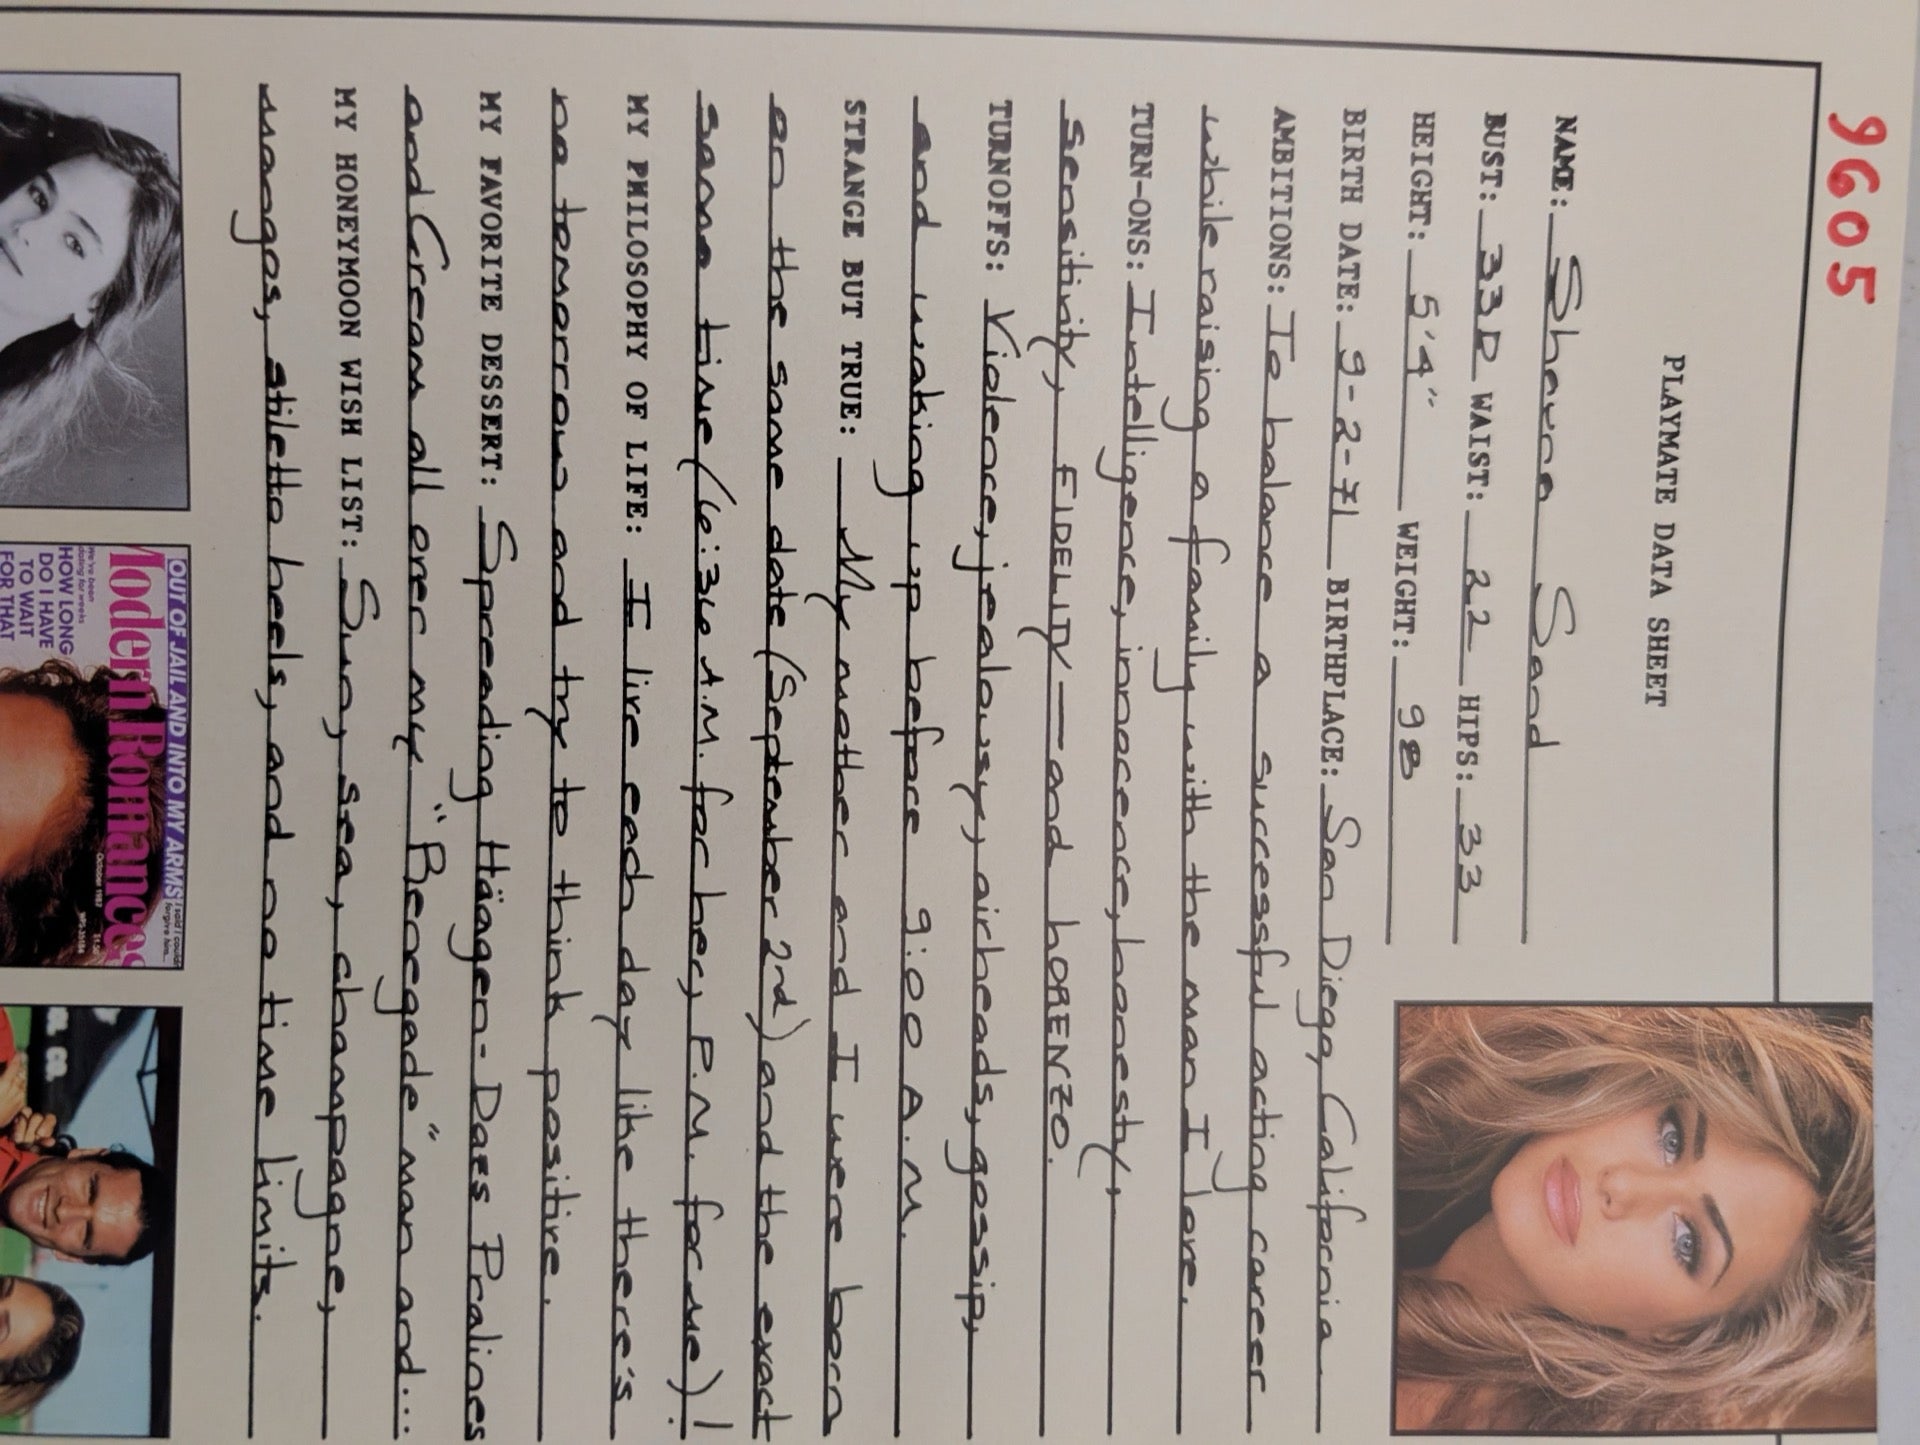 9605
PLAYMATE DATA SHEET
NAME: Shauna Sand
BUST: 33D WAIST: 22 HIPS: 33
HEIGHT: 5'4" WEIGHT: 98
BIRTH DATE: 9-2-71 BIRTHPLACE: San Diego, California
AMBITIONS: To balance a successful acting career
while raising a family with the man I love.
TURN-ONS: Intelligence, innocence, honesty,
sensitivity, FIDELITY—and LORENZO.
TURNOFFS: Violence, jealousy, airheads, gossip,
and waking up before 9:00 A.M.
STRANGE BUT TRUE: My mother and I were born
on the same date (September 2nd) and the exact
same time (6:36 A.M. for her, P.M. for me)!
MY PHILOSOPHY OF LIFE: I live each day like there's
no tomorrow and try to think positive.
MY FAVORITE DESSERT: Spreading Häagen-Dazs Pralines
and Cream all over my "Renegade" man and...
MY HONEYMOON WISH LIST: Sun, sea, champagne,
mangos, stiletto heels, and no time limits.
OUT OF JAIL AND INTO MY ARMS
I said I couldn't
forgive him...
Modern Romances
October 1987
We've been
dating for weeks
HOW LONG
DO I HAVE
TO WAIT
FOR THAT